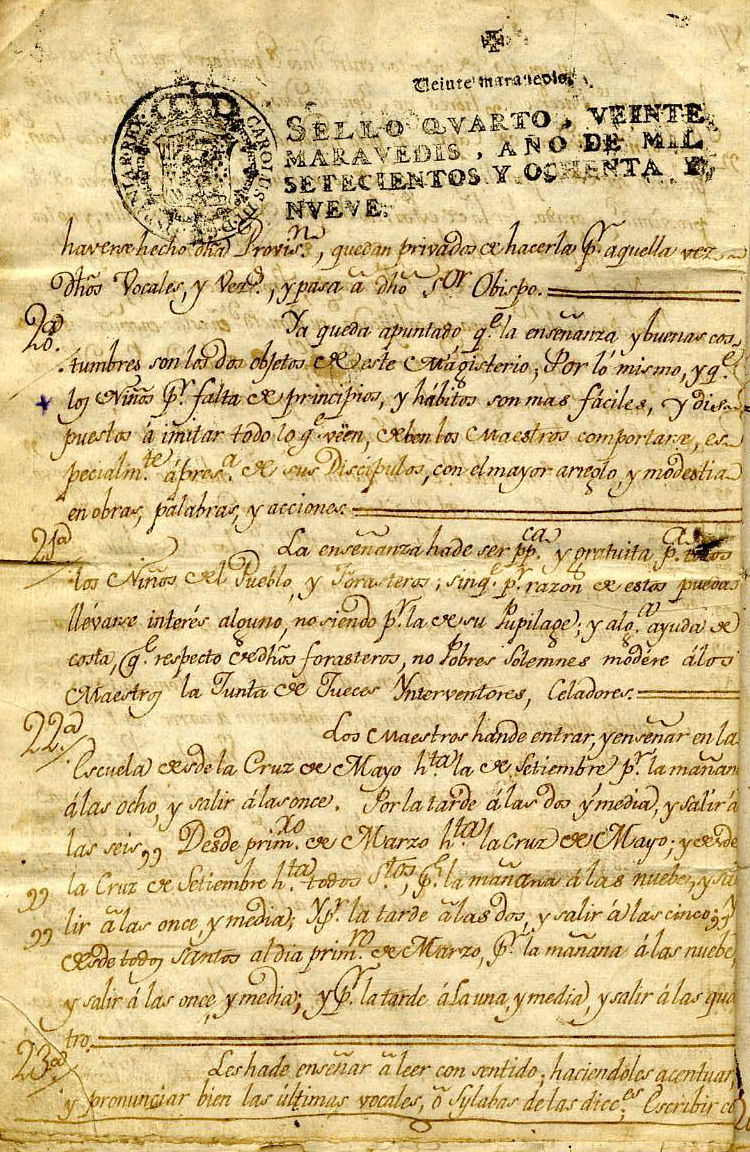 Veinte maravedis.
SELLO QVARTO, VEINTE
MARAVEDIS, AÑO DE MIL
SETECIENTOS Y OCHENTA Y
NVEVE.
haverse hecho dha Provisn., quedan privados de hacerla pr. aquella vez
dhôs Vocales, y Verd., y pasa â dhô Sor Obispo.
20.ª Ya queda apuntado, qe. la enseñanza y buenas cos
tumbres son los dos objetos de este Magisterio; Por ló mismo, y qe.
los Niños pr. falta de principios, y hábitos son mas fáciles, y dis-
puestos á imitar todo lo qe. vëen, deben los Maestros comportarse, es-
pecialm.te á pres.a de sus Discípulos, con el mayor arreglo, y modestia
en obras, palabras, y acciones.
21ª La enseñanza ha de ser pp.ca y gratuita p.a todos
los Niños del Pueblo, y Forasteros; sin qe. pr. razón de estos puedan
llevarse interés alguno, no siendo pr. la de su Pupilage; y alg.a ayuda de
costa, qe. respecto de dhôs forasteros, no Pobres Solemnes modere á los
Maestros la Junta de Jueces Interventores, Celadores.
22.ª Los Maestros han de entrar, y enseñar en la
Escuela desde la Cruz de Mayo h.ta la de Setiembre pr. la mañana
á las ocho, y salir á las once. Por la tarde á las dos y media, y salir á
las seis,, Desde prim.xo de Marzo h.ta la Cruz de Mayo; y desde
,, la Cruz de Setiembre h.ta todos S.tos, pr. la mañana á las nuebe, y sa
,, lir á las once, y media; Y pr. la tarde á las dos, y salir á las cinco,, y
desde todos Santos al dia prim.ro de Marzo, pr. la mañana á las nuebe,
y salir á las once, y media; y pr. la tarde á la una, y media, y salir á las qua
tro.
23.ª Les ha de enseñar à leer con sentido; haciendoles acentuar,
y pronunciar bien las últimas vocales, ô Sylabas de las dicc.es Escribir co